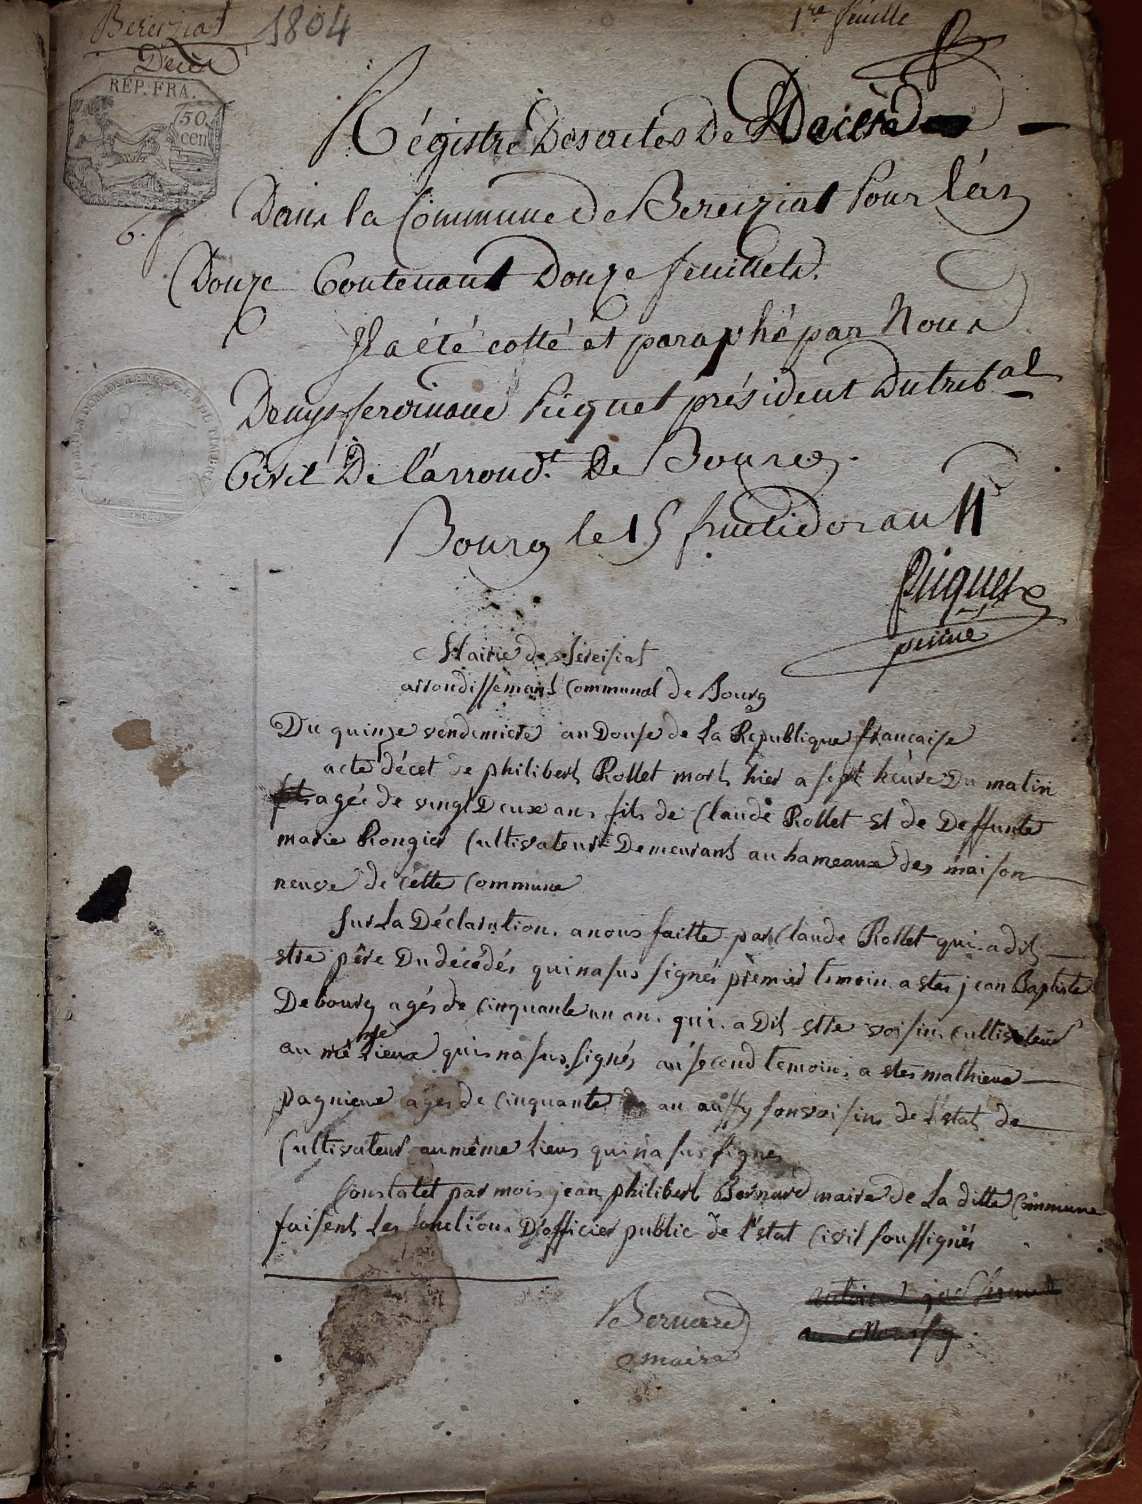 Bereiziat 1804
Décès
1re feuille
REP. FRA.
50 cent
Régistre Des actes De Décès
Dans la Commune de Bereiziat Pour l'an
Douze Contenant Douze feuillets.
Il a été cotté et paraphé par Nous
Denys ferdinand Piquet président Du tribal
Civil De l'arrondt. De Bourg.
Bourg le 15 fructidor an 11
Piquet
Mairie de Bereisiat
arrondissemant Communal de Bourg
Du quinze vendemiere an Douse de La Republique française
acte décet de philibert Rollet mort hier a sept heure Du matin
agée de vingt Deux ans fils de Claude Rollet et de Deffunte
marie Rongier Cultivateur Demeurant au hameaux des maison
neuve de cette Commune
Sur La Déclaration a nous faitte par Claude Rollet qui a dit
etre père Du décédés qui na sus signés premier temoin a etes jean Baptiste
Debourg agés de cinquante un an qui a Dit etre voisin cultivateur
au même Lieux qui na sus signés au second temoins a etes mathieu
pagnieux agés de cinquante un an aussy son voisin de l'etat de
Cultivateur au même Lieux qui na sus signes
Constatet par mois jean philibert Bernard maire de La ditte Commune
faisent Les fonction D'officier public de l'etat Civil soussignés
Bernard
maire